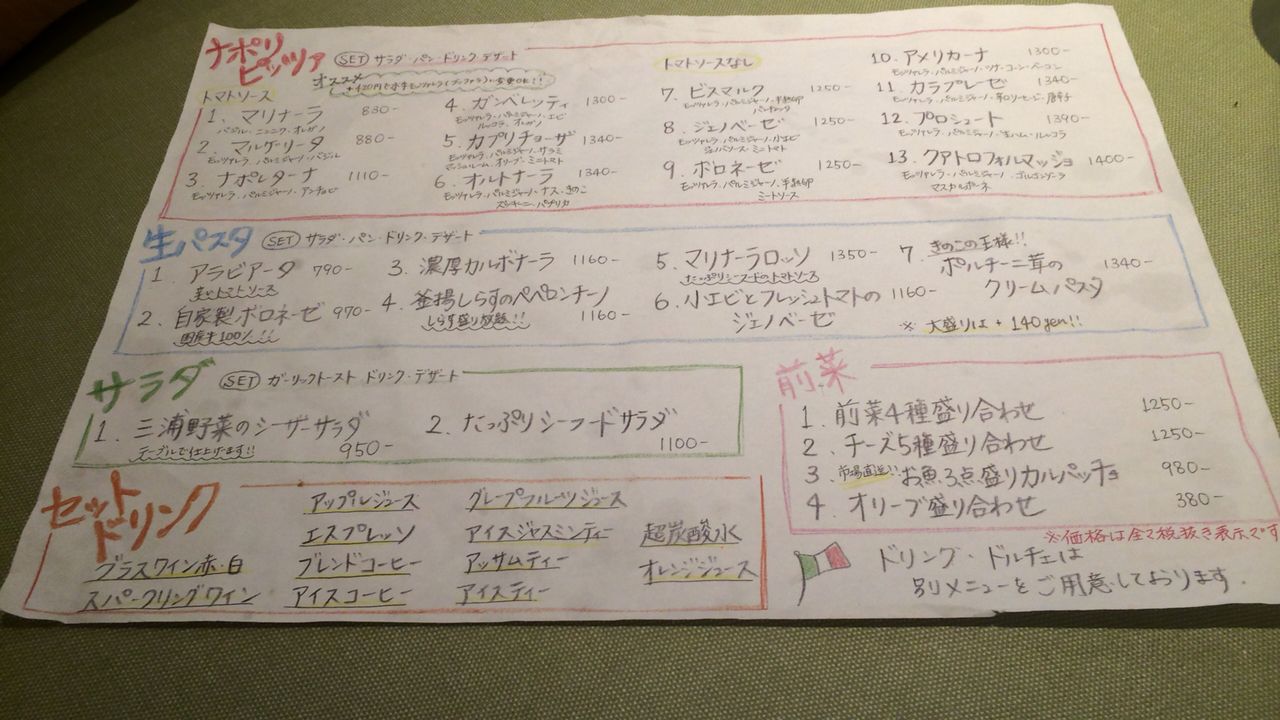 ナポリピッツァ
SET サラダ・パン・ドリンク・デザート
オススメ
トマトソース
1. マリナーラ 880-
バジル・ニンニク・オレガノ
2. マルゲリータ 880-
モッツァレラ・パルミジャーノ・バジル
3. ナポレターナ 1110-
モッツァレラ・パルミジャーノ・アンチョビ
4. ガンベレッティ 1300-
モッツァレラ・パルミジャーノ・エビ
ルッコラ・オレガノ
5. カプリチョーザ 1340-
モッツァレラ・パルミジャーノ・サラミ
マッシュルーム・オリーブ・ミニトマト
6. オルトナーラ 1340-
モッツァレラ・パルミジャーノ・ナス・きのこ
ズッキーニ・パプリカ
トマトソースなし
7. ビスマルク 1250-
モッツァレラ・パルミジャーノ・半熟卵
パンチェッタ
8. ジェノベーゼ 1250-
モッツァレラ・パルミジャーノ・小エビ
ジェノバソース・ミニトマト
9. ボロネーゼ 1250-
モッツァレラ・パルミジャーノ・半熟卵
ミートソース
10. アメリカーナ 1300-
モッツァレラ・パルミジャーノ・ツナ・コーン・ベーコン
11. カラブレーゼ 1340-
モッツァレラ・パルミジャーノ・辛口ソーセージ・唐辛子
12. プロシュート 1390-
モッツァレラ・パルミジャーノ・生ハム・ルッコラ
13. クアトロフォルマッジョ 1400-
モッツァレラ・パルミジャーノ・ゴルゴンゾーラ
マスカルポーネ
生パスタ
SET サラダ・パン・ドリンク・デザート
1. アラビアータ 790-
辛いトマトソース
2. 自家製ボロネーゼ 970-
国産牛100%!!
3. 濃厚カルボナーラ 1160-
4. 釜揚しらすのペペロンチーノ
しらす盛り放題!! 1160-
5. マリナーラロッソ 1350-
たっぷりシーフードのトマトソース
6. 小エビとフレッシュトマトの 1160-
ジェノベーゼ
7. きのこの王様!!
ポルチーニ茸の 1340-
クリームパスタ
※ 大盛りは + 140yen!!
サラダ
SET ガーリックトースト ドリンク・デザート
1. 三浦野菜のシーザーサラダ
テーブルで仕上げます!! 950-
2. たっぷりシーフードサラダ
1100-
前菜
1. 前菜4種盛り合わせ 1250-
2. チーズ5種盛り合わせ 1250-
3. 市場直送!! お魚3点盛りカルパッチョ 980-
4. オリーブ盛り合わせ 380-
※価格は全て税抜き表示です
セットドリンク
グラスワイン赤・白
スパークリングワイン
アップルジュース
エスプレッソ
ブレンドコーヒー
アイスコーヒー
グレープフルーツジュース
アイスジャスミンティー
アッサムティー
アイスティー
超炭酸水
オレンジジュース
ドリンク・ドルチェは
別メニューをご用意しております.